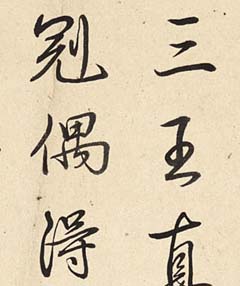 三王真
剋偶得